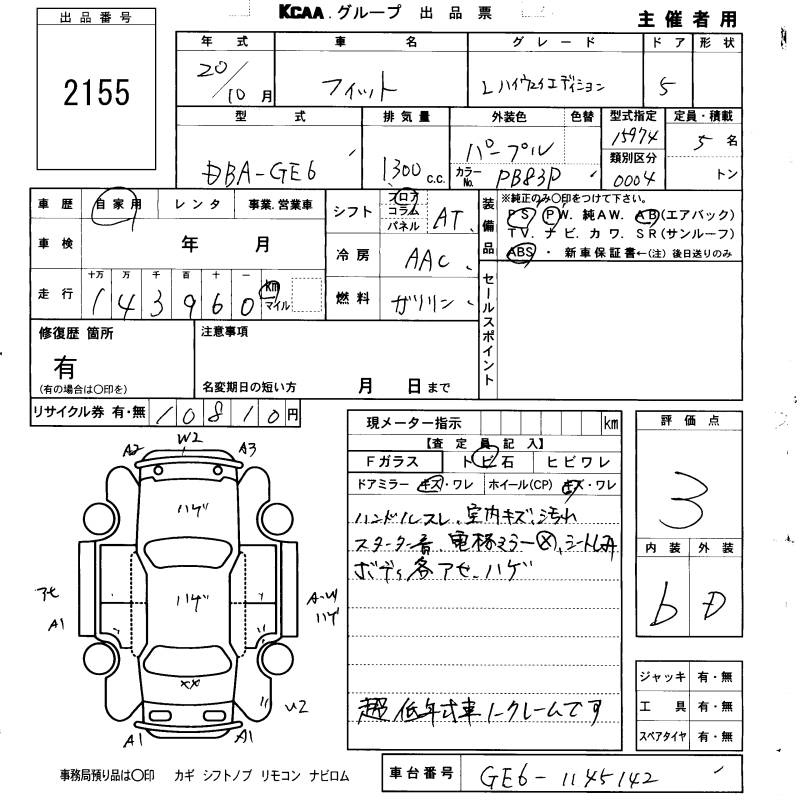 KCAA.グループ 出品票
主催者用
出品番号
2155
年式 車名 グレード ドア 形状
20/10月 フィット Lハイウェイエディション 5
型式 排気量 外装色 色替 型式指定 定員・積載
DBA-GE6 1300 c.c. パープル 15974 5名
類別区分
カラーNo. PB83P 0004 トン
車歴 自家用 レンタ 事業.営業車
車検 年 月
走行 十万 万 千 百 十 一
143960 km マイル
シフト フロア コラム パネル AT
冷房 AAC
燃料 ガソリン
装備品 ※純正のみ〇印をつけて下さい。
PS. PW. 純AW. AB(エアバック)
TV. ナビ. カワ. SR(サンルーフ)
ABS ・ 新車保証書←(注)後日送りのみ
セールスポイント
修復歴 箇所
有
(有の場合は〇印を)
注意事項
名変期日の短い方 月 日まで
リサイクル券 有・無 10810円
現メーター指示 km
【査定員記入】
Fガラス トビ石 ヒビワレ
ドアミラー キズ・ワレ ホイール(CP) キズ・ワレ
ハンドルスレ、室内キズ、汚れ
スターター音、電格ミラー×、シートしみ
ボディ各アセ、ハゲ
超低年式車ノークレームです
評価点
3
内装 外装
b D
ジャッキ 有・無
工具 有・無
スペアタイヤ 有・無
A2 W2 A3
ハゲ
ハゲ
アセ
A1
ハゲ
××
U2
A1 A1
事務局預り品は〇印 カギ シフトノブ リモコン ナビロム
車台番号 GE6-1145142